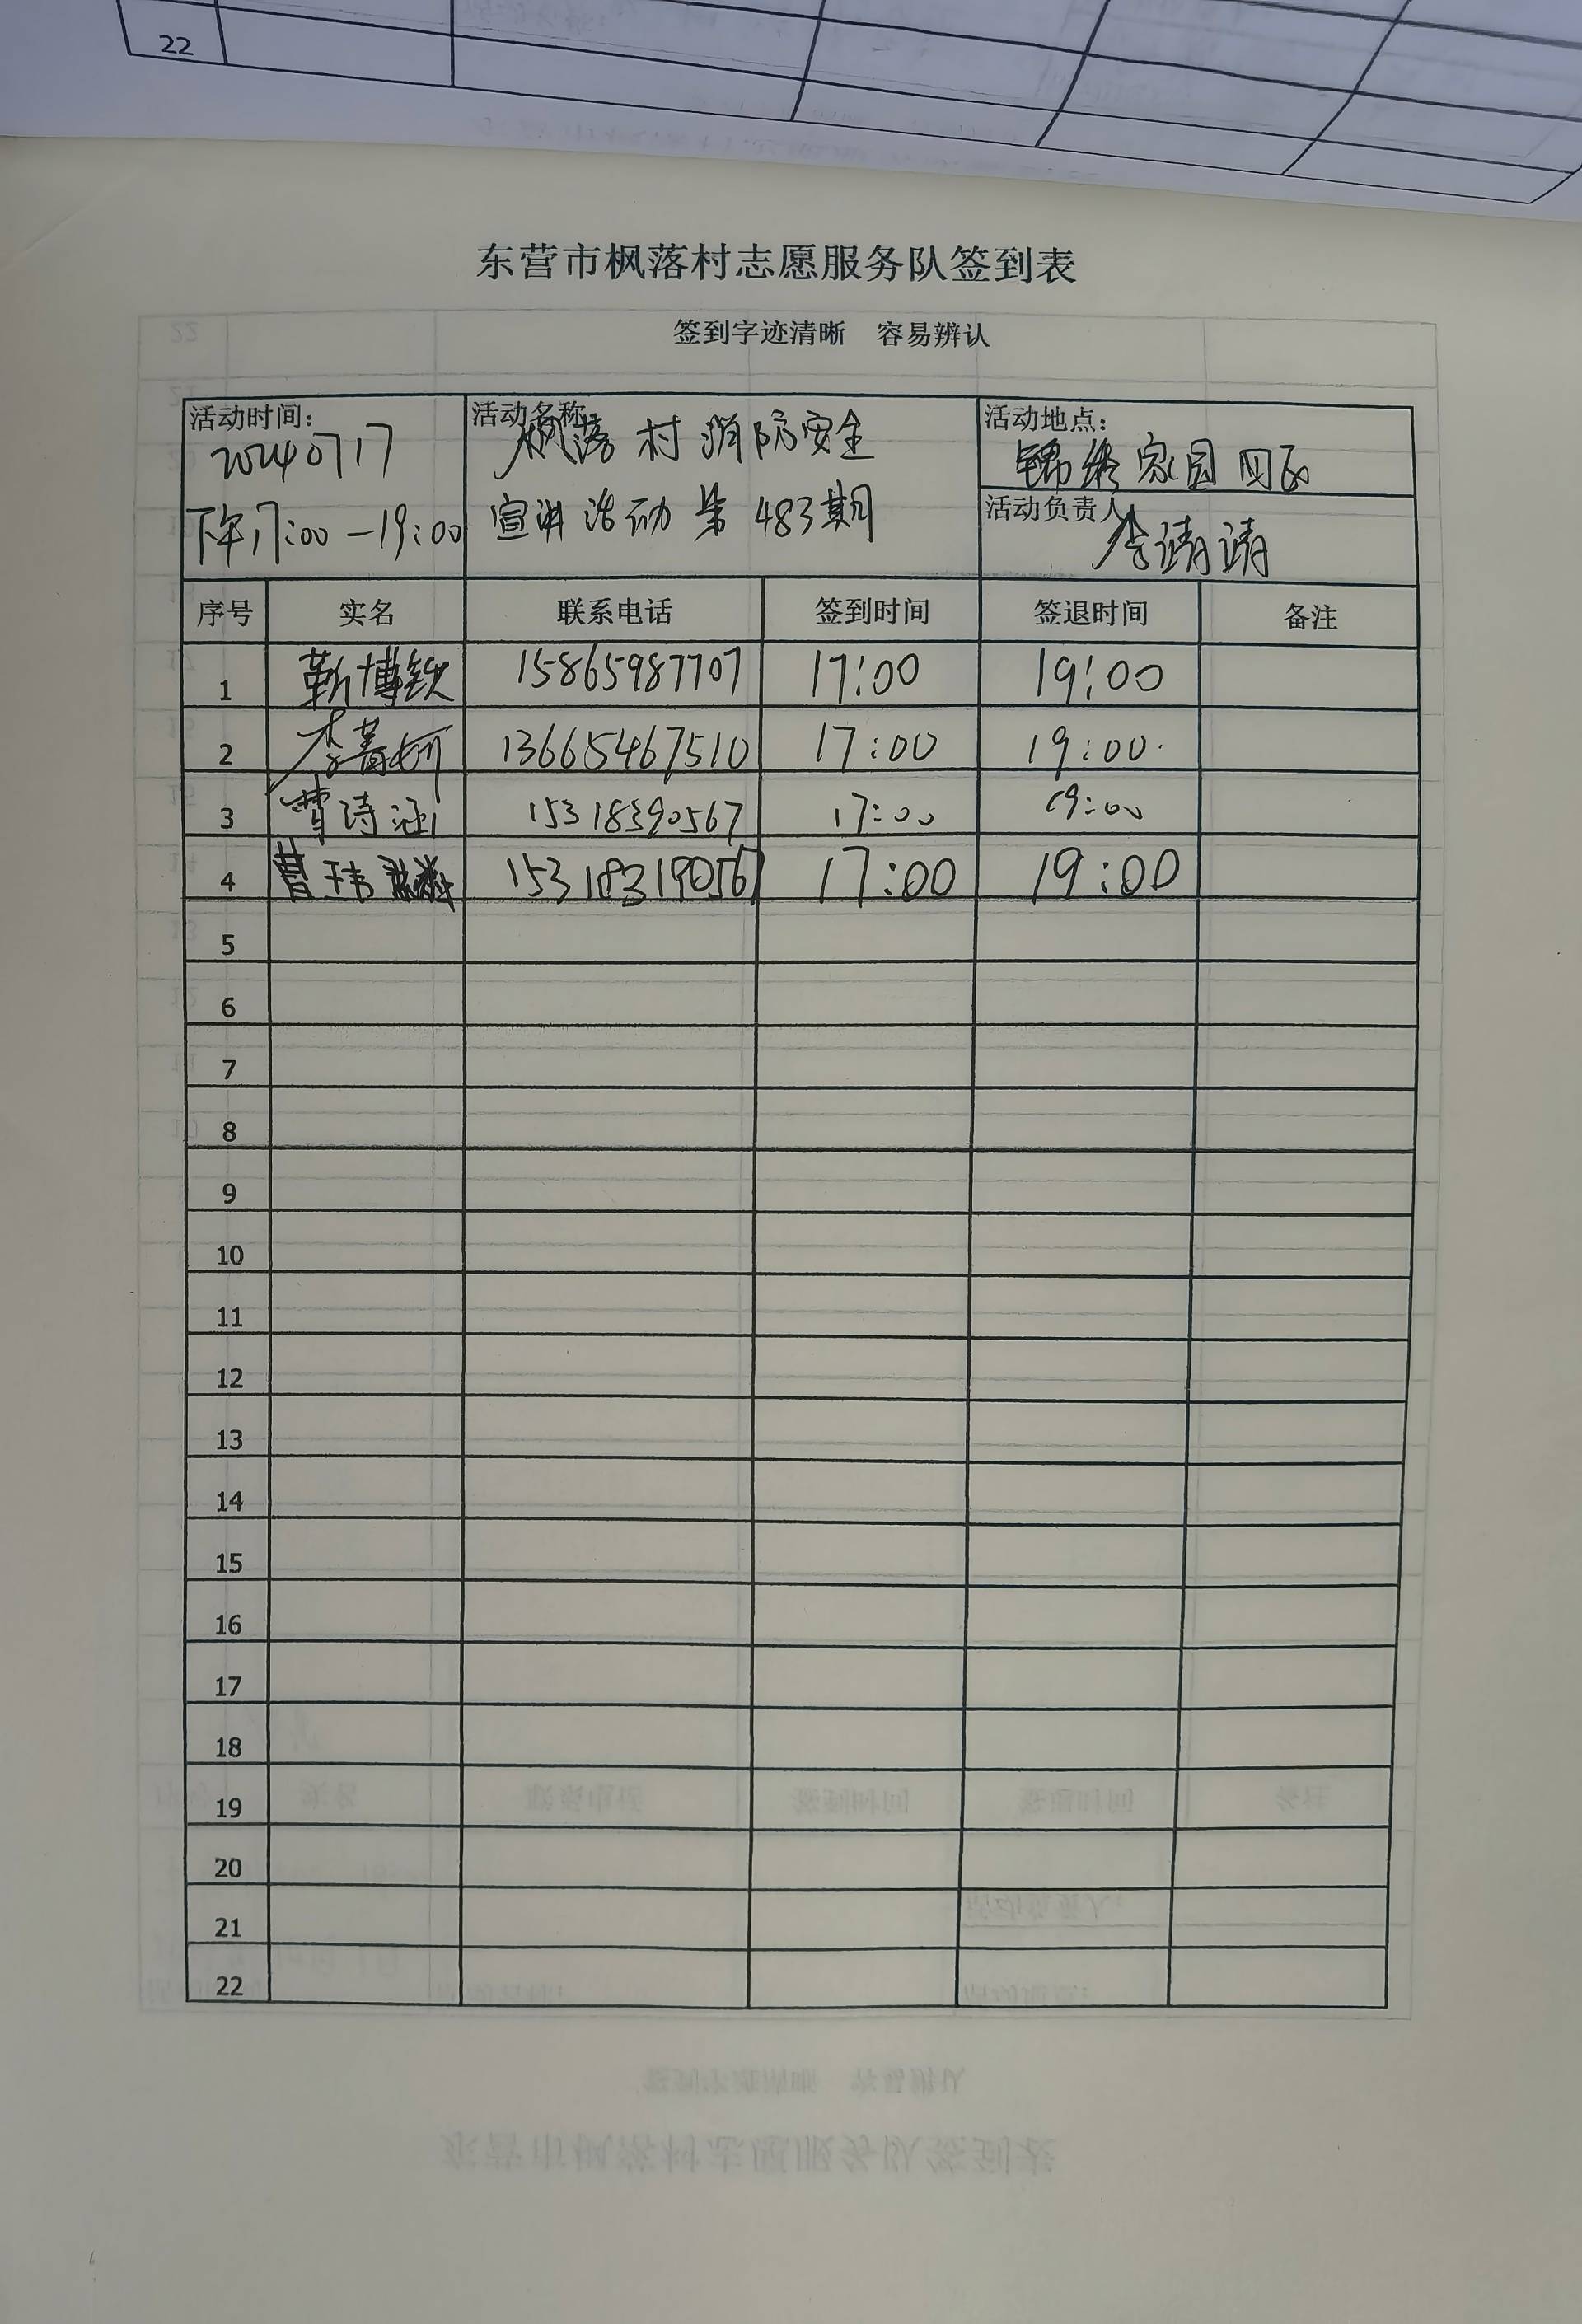 22
东营市枫落村志愿服务队签到表
签到字迹清晰 容易辨认
活动时间：
20240717
下午17:00-19:00
活动名称
枫落村消防安全
宣讲活动第483期
活动地点：
锦绣家园四区
活动负责人
李请请
序号 实名 联系电话 签到时间 签退时间 备注
1 靳博 15865987707 17:00 19:00
2 李菁妍 13665467510 17:00 19:00
3 曹诗涵 15318390567 17:00 19:00
4 曹玮 17:00 19:00
5
6
7
8
9
10
11
12
13
14
15
16
17
18
19
20
21
22